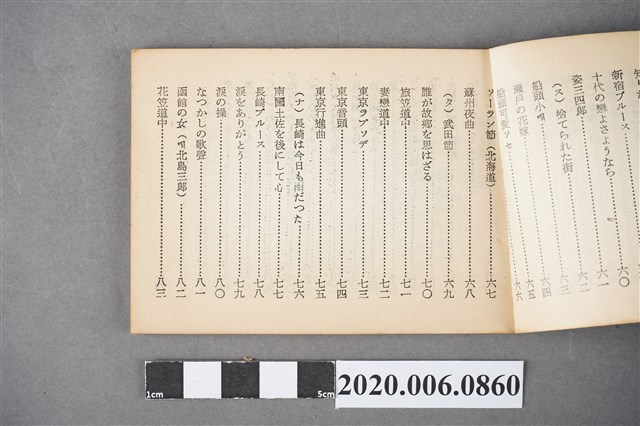 新宿ブルース……六〇
十代の恋よさようなら……六一
姿三四郎……六二
(ス)捨てられた街……六三
船頭小唄……六四
瀬戸の花嫁……六五
船頭可愛ソセ……六六
ソーラン節(北海道)……六七
蘇州夜曲……六八
(タ)武田節……六九
誰が故郷を思はざる……七〇
旅笠道中……七一
妻恋道中……七二
東京ラプソデ……七三
東京音頭……七四
東京行進曲……七五
(ナ)長崎は今日も雨だつた……七六
南國土佐を後にして心……七七
長崎ブルース……七八
涙をありがとう……七九
涙の操……八〇
なつかしの歌聲……八一
函館の女(唄北島三郎)……八二
花笠道中……八三
1cm
5cm
2020.006.0860